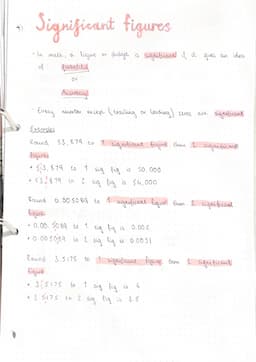 Significant figures
- In math, a figure or digit is significant if it gives an idea
of quantity
or
Accuracy
- Every number except (trailing or leading) zeros are significant
Examples
Round 53,879 to 1 significant figure then 2 significant
figures
• 53,879 to 1 sig fig is 50,000
• 53,879 to 2 sig fig is 54,000
Round 0.005089 to 1 significant figure then 2 significant
figure
• 0.005089 to 1 sig fig is 0.005
• 0.005089 to 2 sig fig is 0.0051
Round 3.5175 to 1 significant figure then 2 significant
figure
• 3.5175 to 1 sig fig is 4
• 3.5175 to 2 sig fig is 3.5